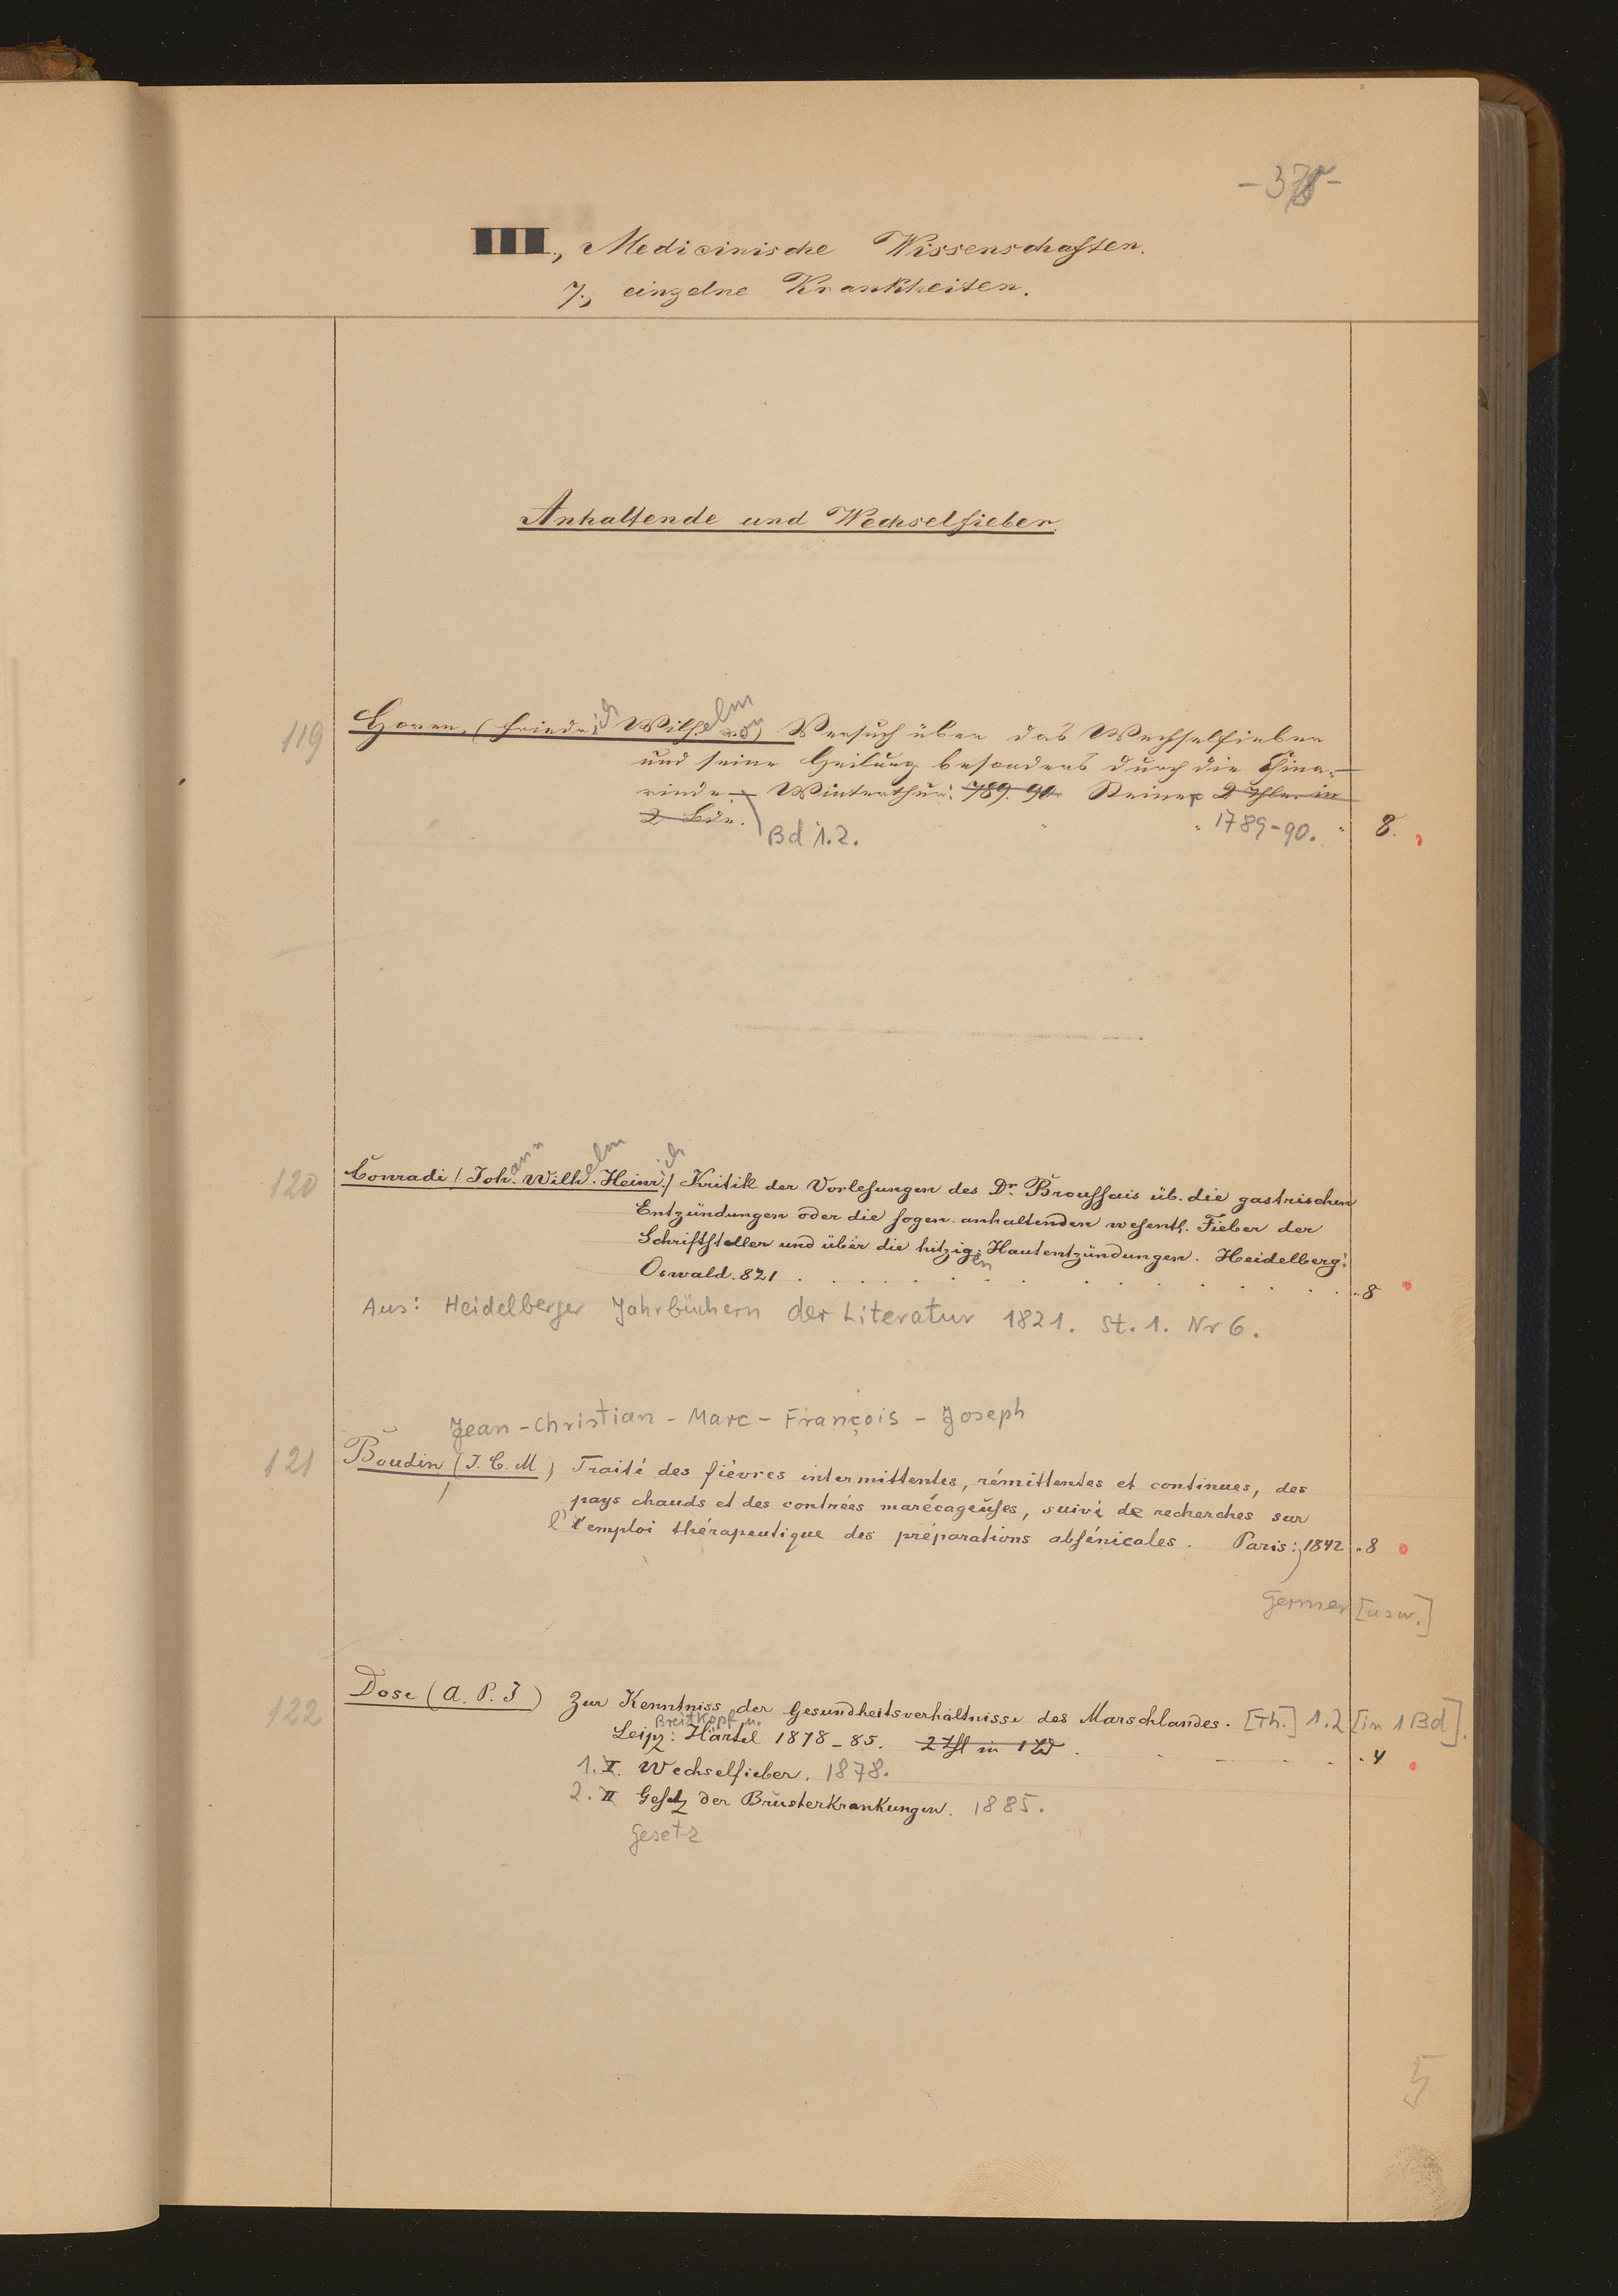 - 375 -
III., Medicinische Wissenschaften.
7., einzelne Krankheiten.
Anhaltende und Wechselfieber.
119 Hoven, (Friedrich Wilhelm von) Versuch über das Wechselfieber
und seine Heilung besonders durch die China-
rinde. — Winterthur: 789. 90 Steiner 2 Thle. in
2 Bdn. Bd 1.2. 1789-90. 8.
120 Conradi (Johann Wilhelm Heinrich) Kritik der Vorlesungen des Dr. Broussais üb. die gastrischen
Entzündungen oder die sogen. anhaltenden wesentl. Fieber der
Schriftsteller und über die hitzigen Hautentzündungen. Heidelberg:
Oswald. 821 . . . . . . 8
Aus: Heidelberger Jahrbüchern der Literatur 1821. St. 1. Nr 6.
Jean-Christian-Marc-François-Joseph
121 Boudin (J. C. M.) Traité des fièvres intermittentes, rémittentes et continues, des
pays chauds et des contrées marécageuses, suivi de recherches sur
l'emploi thérapeutique des préparations arsénicales. Paris: 1842 . 8
Germer [usw.]
122 Dose (A. P. J) Zur Kenntniss der Gesundheitsverhältnisse des Marschlandes. [Th.] 1.2 [in 1 Bd].
Breitkopf u.
Leipz: Härtel 1878-85. 2 Thl in 1 Bd . 4
1. I. Wechselfieber. 1878.
2. II Gesetz der Brusterkrankungen. 1885.
Gesetz
5